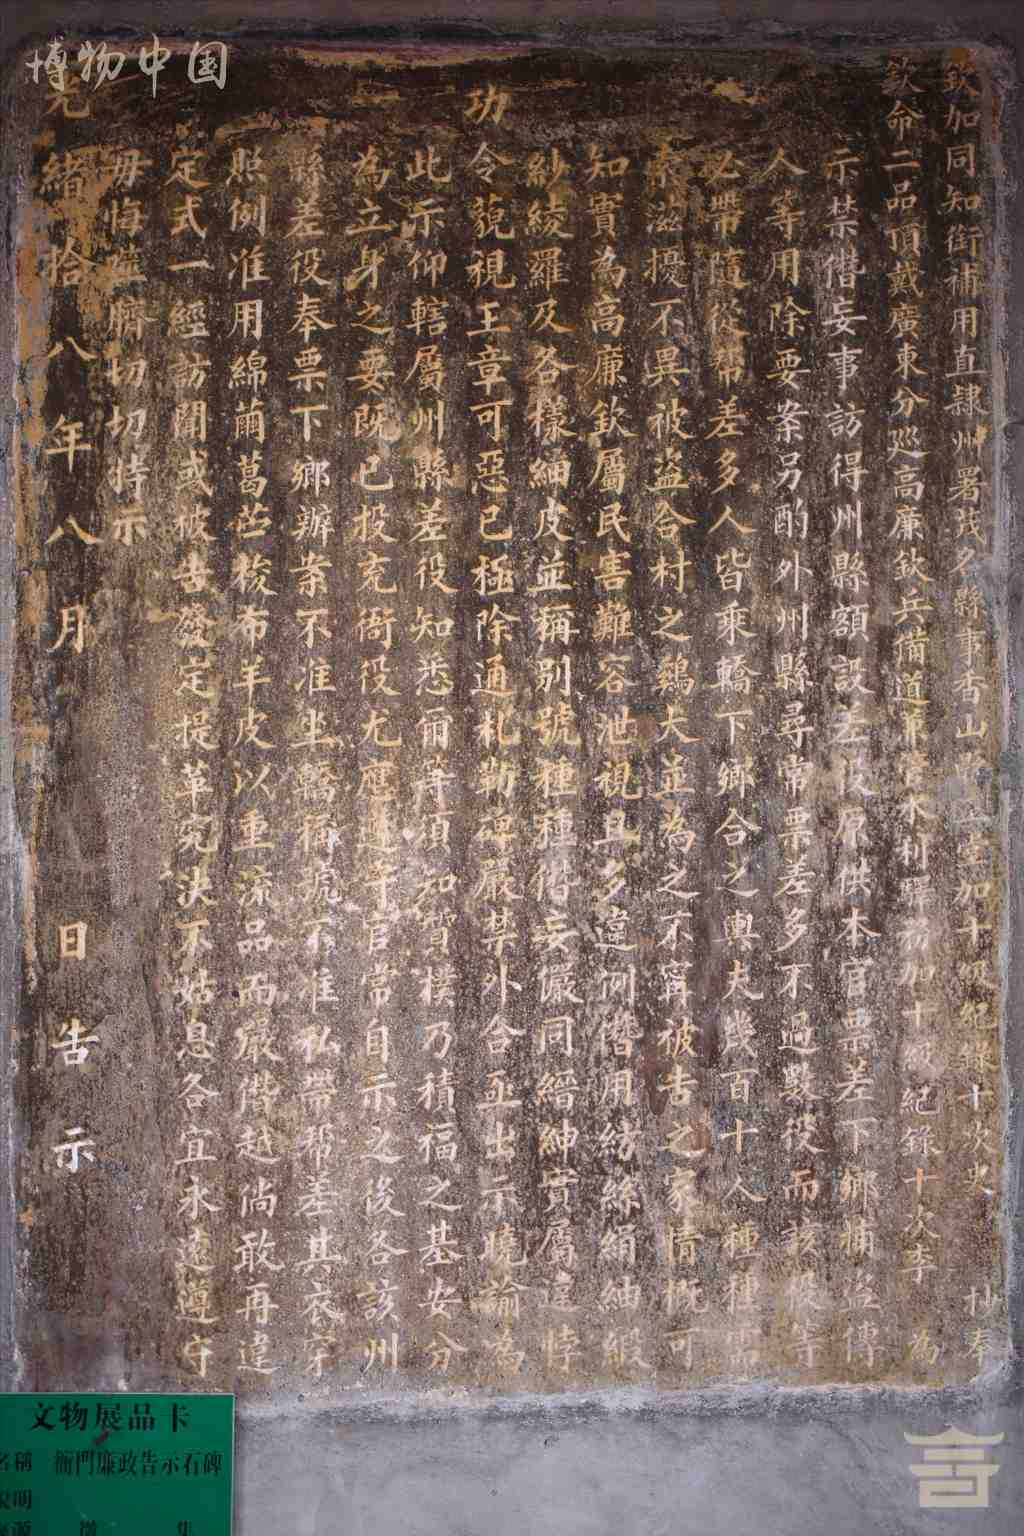 博物中国
欽加同知銜補用直隸州署茂名縣事香山縣正堂加十級紀錄十次史 抄奉
欽命二品頂戴廣東分巡高廉欽兵備道兼管水利驛務加十級紀錄十次李 為
示禁僭妄事訪得州縣額設差役原供本官票差下鄉捕盜傳
人等用除要案另酌外州縣尋常票差多不過數役而該役等
必帶隨從幫差多人皆乘轎下鄉合之輿夫幾百十人種種需
索滋擾不異被盜合村之鷄犬並為之不寗被害之家情概可
知實為高廉欽屬民害難容泄視且多違例僭用紡絲絹紬緞
紗綾羅及各樣細皮並稱別號種種僭妄儼同縉紳實屬違悖
功
令藐視王章可惡已極除通札勒碑嚴禁外合亟出示曉諭為
此示仰轄屬州縣差役知悉爾等須知質樸乃積福之基安分
為立身之要既已投充衙役尤應遵守官常自示之後各該州
縣差役奉票下鄉辦案不准坐轎稱號不准私帶幫差其衣穿
照例准用綿繭葛苧梭布羊皮以重流品而嚴僭越倘敢再違
定式一經訪聞或被告發定提革究決不姑息各宜永遠遵守
毋悔噬臍切切特示
光緒拾八年八月 日告示
文物展品卡
名稱 衙門廉政告示石碑
說明
來源 徵集